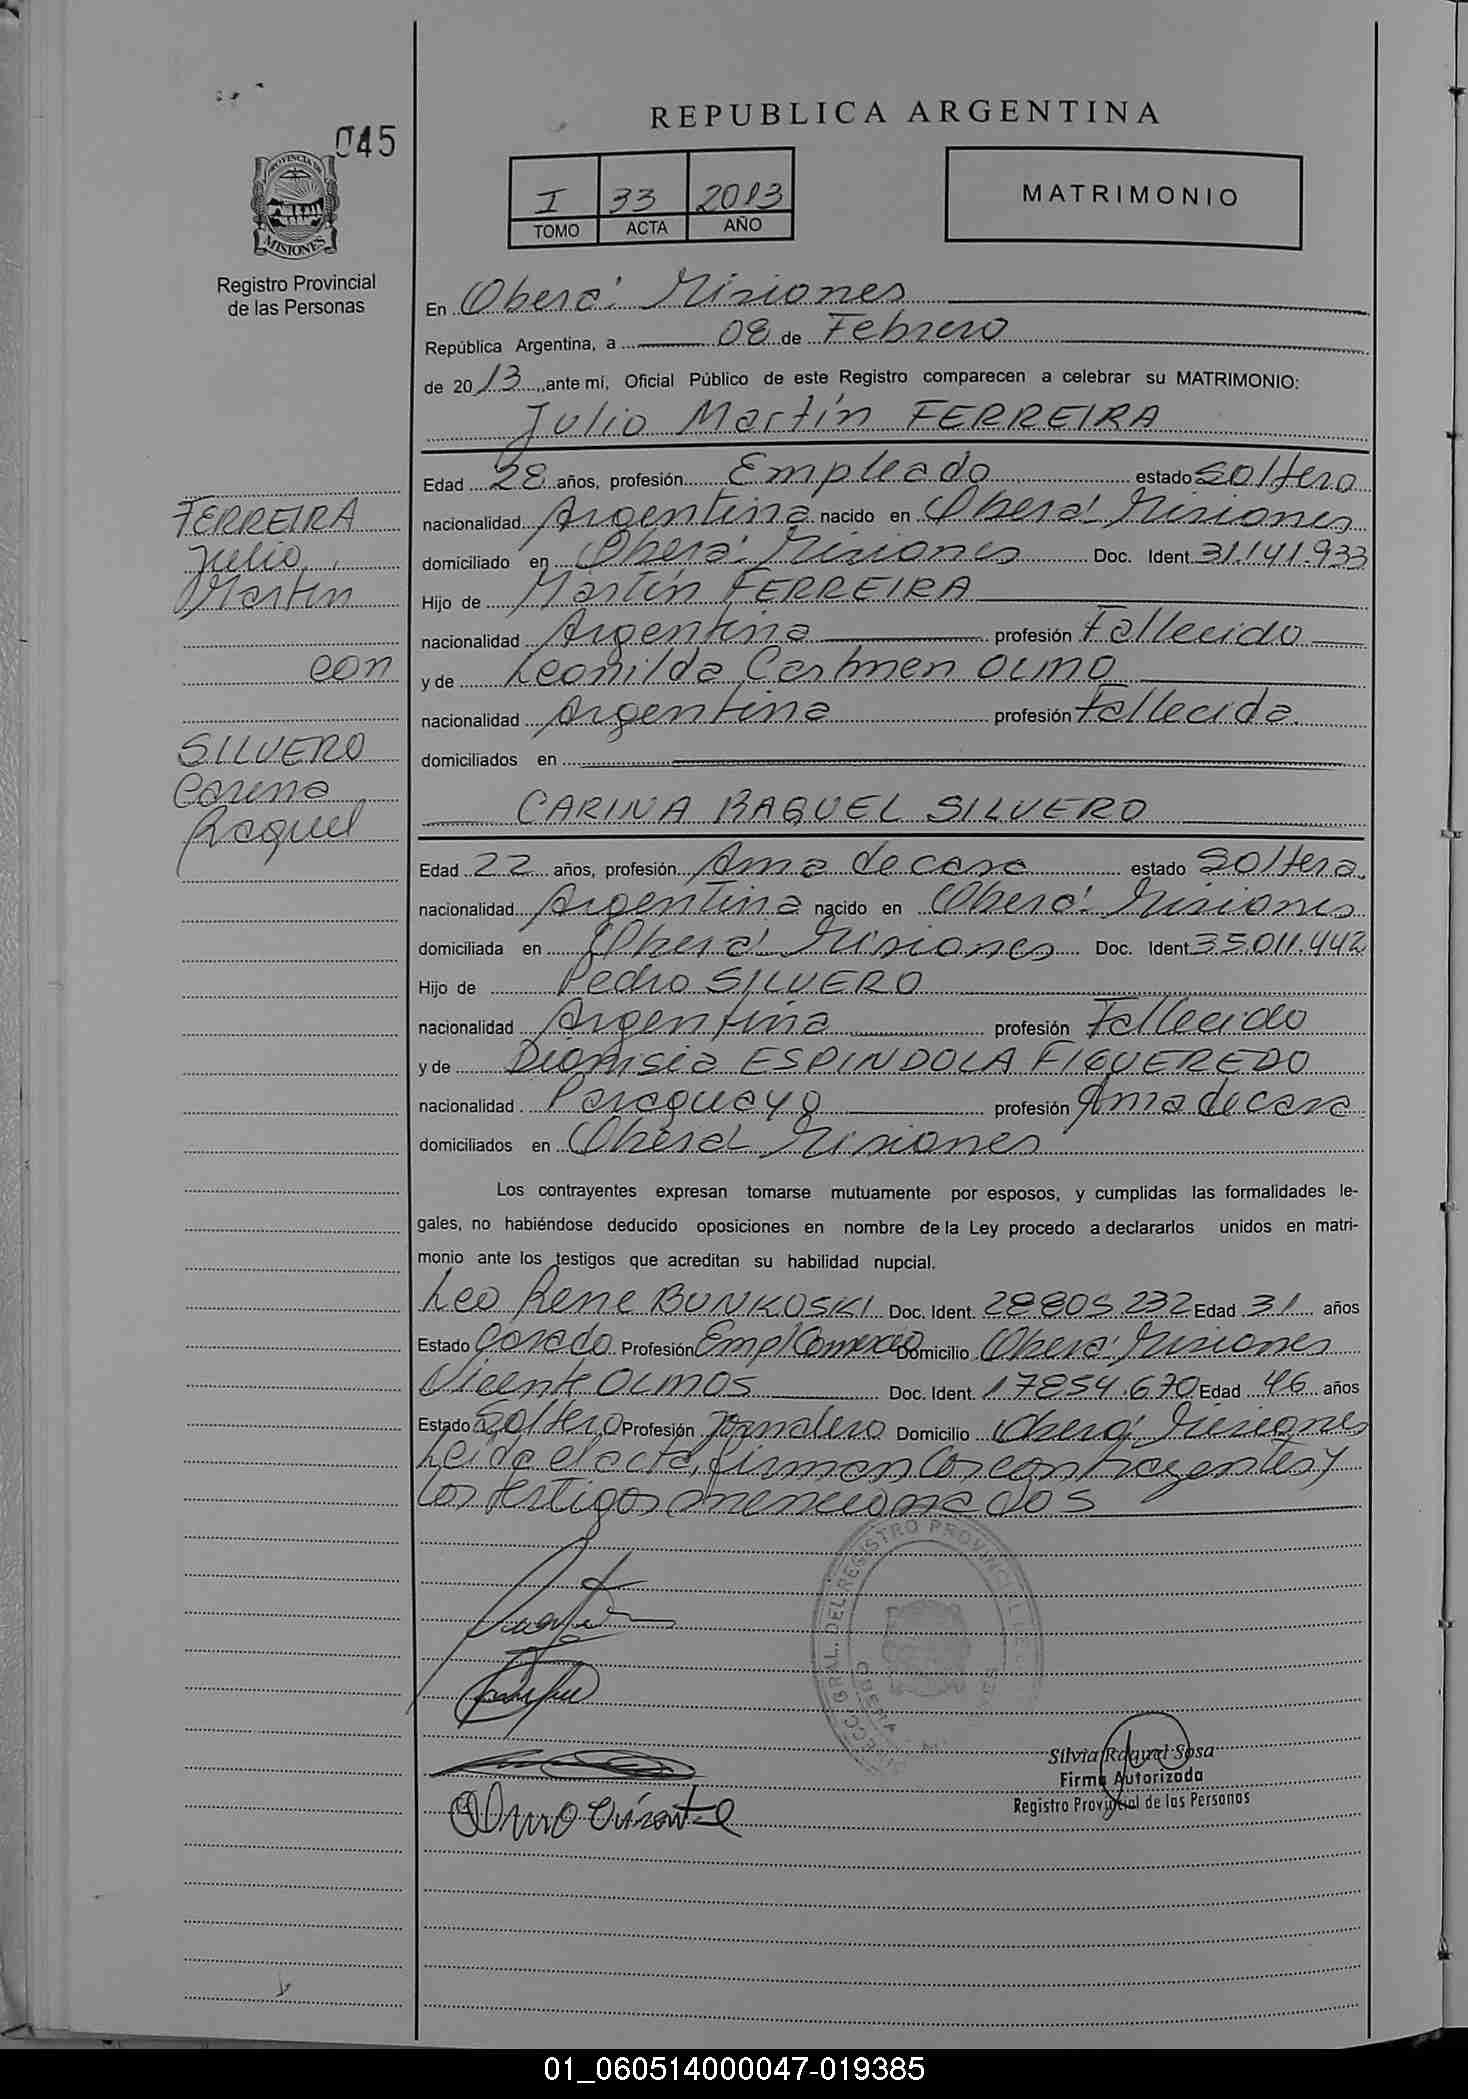 045
REPUBLICA ARGENTINA
PROVINCIA DE
MISIONES
Registro Provincial
de las Personas
I 33 2013
TOMO ACTA AÑO
MATRIMONIO
En Oberá Misiones
República Argentina, a 08 de Febrero
de 2013, ante mí, Oficial Público de este Registro comparecen a celebrar su MATRIMONIO:
Julio Martín FERREIRA
Edad 28 años, profesión Empleado estado Soltero
nacionalidad Argentina nacido en Oberá Misiones
domiciliado en Oberá Misiones Doc. Ident. 31.141.933
Hijo de Martín FERREIRA
nacionalidad Argentina profesión Fallecido
y de Leonilda Carmen OLMO
nacionalidad Argentina profesión Fallecida
domiciliados en
FERREIRA
Julio
Martin
con
SILVERO
Carina
Raquel
CARINA RAQUEL SILVERO
Edad 22 años, profesión Ama de casa estado Soltera
nacionalidad Argentina nacido en Oberá Misiones
domiciliada en Oberá Misiones Doc. Ident 35.011.442
Hijo de Pedro SILVERO
nacionalidad Argentina profesión Fallecido
y de Dionisia ESPINDOLA FIGUEREDO
nacionalidad Paraguaya profesión Ama de casa
domiciliados en Oberá Misiones
Los contrayentes expresan tomarse mutuamente por esposos, y cumplidas las formalidades le-
gales, no habiéndose deducido oposiciones en nombre de la Ley procedo a declararlos unidos en matri-
monio ante los testigos que acreditan su habilidad nupcial.
Leo Rene BUNKOSKI Doc. Ident. 28805.232 Edad 31 años
Estado Casado Profesión Empl Comercio Domicilio Oberá Misiones
Vicente OLMOS Doc. Ident. 17854.670 Edad 46 años
Estado Soltero Profesión Jornalero Domicilio Oberá Misiones
Leída el acta, firman los contrayentes y
los testigos mencionados
GRAL. DEL REGISTRO PROVINCIAL DE
OBERA
Olmo Vicente
Silvia Raquel Sosa
Firma Autorizada
Registro Provincial de las Personas
01_060514000047-019385